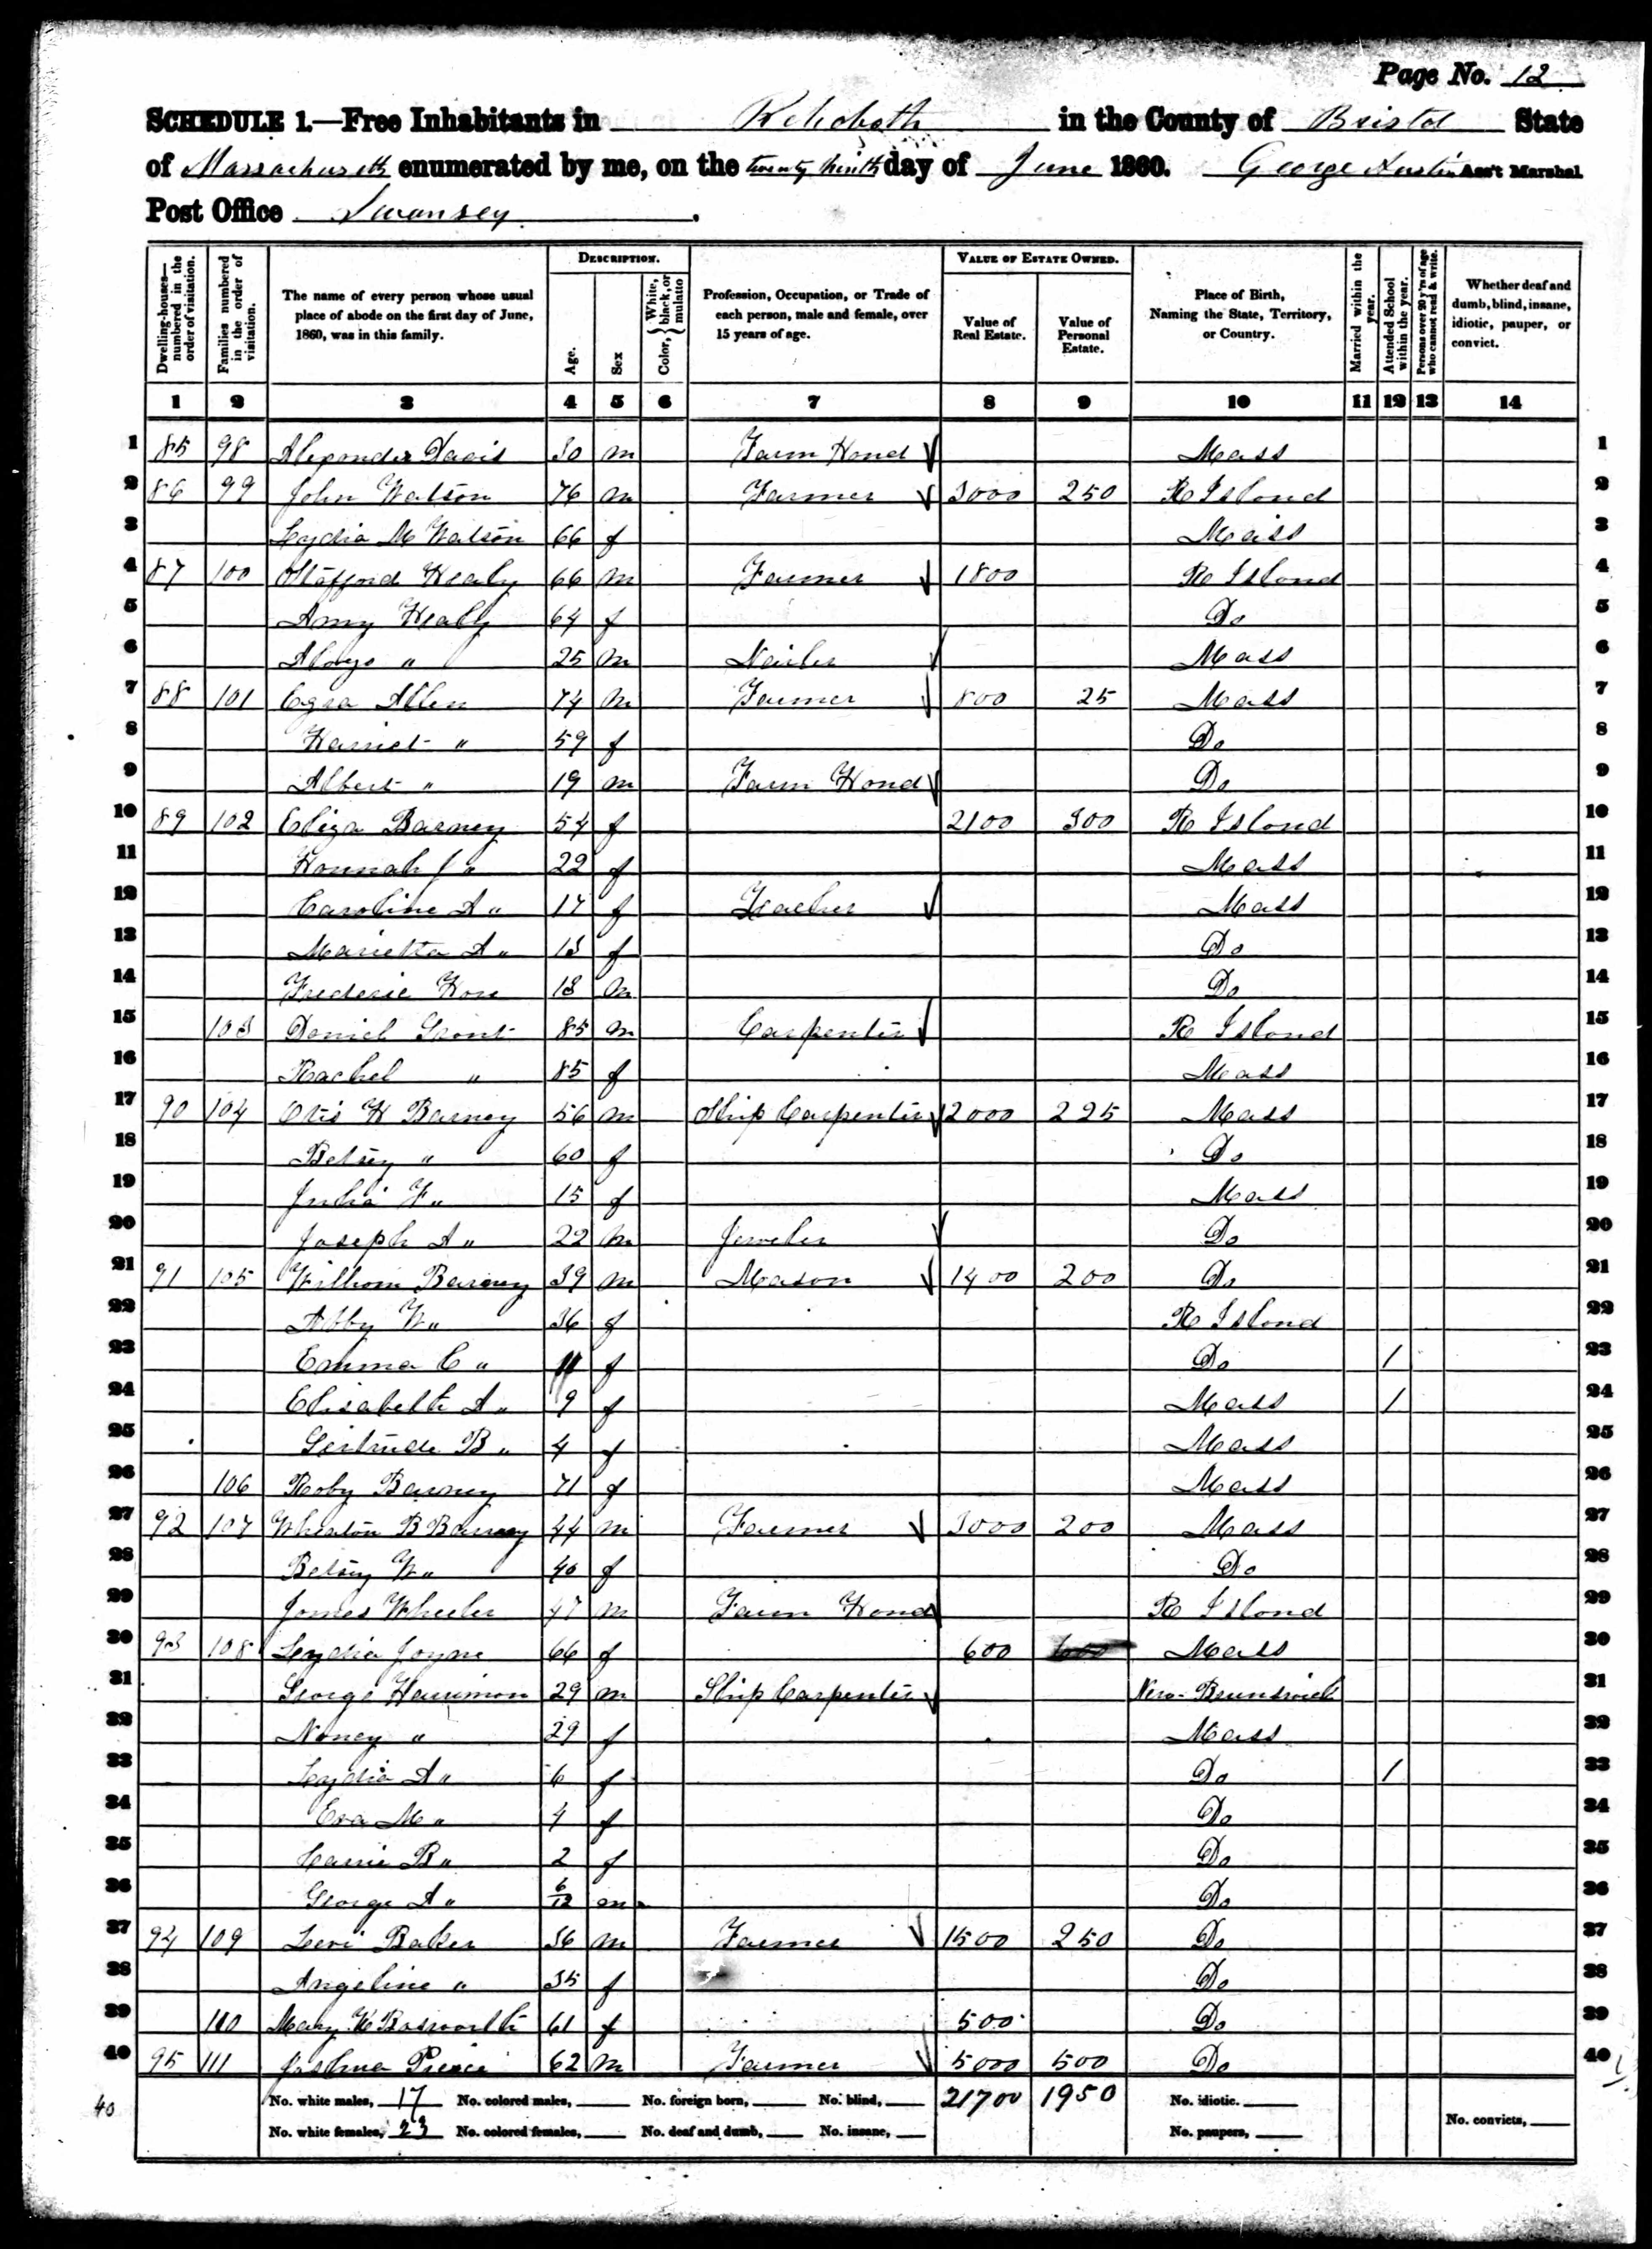 Page No. 12
SCHEDULE 1.—Free Inhabitants in Rehoboth in the County of Bristol State
of Massachusetts enumerated by me, on the twenty ninth day of June 1860. George Austin Ass't Marshal
Post Office Swansey.
Dwelling-houses—numbered in the order of visitation.
Families numbered in the order of visitation.
The name of every person whose usual place of abode on the first day of June, 1860, was in this family.
DESCRIPTION.
Age.
Sex
Color, { White, black, or mulatto
Profession, Occupation, or Trade of each person, male and female, over 15 years of age.
VALUE OF ESTATE OWNED.
Value of Real Estate.
Value of Personal Estate.
Place of Birth, Naming the State, Territory, or Country.
Married within the year.
Attended School within the year.
Persons over 20 y'rs of age who cannot read & write.
Whether deaf and dumb, blind, insane, idiotic, pauper, or convict.
1 2 3 4 5 6 7 8 9 10 11 12 13 14
1 85 98 Alexander Davis 30 m Farm Hand Mass 1
2 86 99 John Watson 76 m Farmer 3000 250 R Island 2
3 Lydia M Watson 66 f Mass 3
4 87 100 Stafford Healy 66 m Farmer 1800 R Island 4
5 Amy Healy 64 f Do 5
6 " 25 m Nailer Mass 6
7 88 101 Ezra Allen 74 m Farmer 800 25 Mass 7
8 Harriet " 59 f Do 8
9 Albert " 19 m Farm Hand Do 9
10 89 102 Eliza Barney 54 f 2100 300 R Island 10
11 Hannah J " 22 f Mass 11
12 Caroline A " 17 f Teacher Mass 12
13 Marietta A " 13 f Do 13
14 Frederic 13 m Do 14
15 103 Daniel Grant 85 m Carpenter R Island 15
16 Rachel " 85 f Mass 16
17 90 104 Otis H Barney 56 m Ship Carpenter 2000 225 Mass 17
18 Betsey " 60 f Do 18
19 Julia F " 15 f Mass 19
20 Joseph A " 22 m Jeweler Do 20
21 91 105 William Barney 39 m Mason 1400 200 Do 21
22 Abby W " 36 f R Island 22
23 Emma C " 11 f Do 1 23
24 Elisabeth A " 9 f Mass 1 24
25 Gertrude B " 4 f Mass 25
26 106 Roby Barney 71 f Mass 26
27 92 107 Wheaton B Barney 44 m Farmer 3000 200 Mass 27
28 Betsey W " 40 f Do 28
29 James Wheeler 47 m Farm Hand R Island 29
30 93 108 Lydia Joyne 66 f 600 Mass 30
31 George Harrimon 29 m Ship Carpenter New-Brunswick 31
32 Nancy " 29 f Mass 32
33 Lydia A " 6 f Do 1 33
34 Eva M " 4 f Do 34
35 Carrie B " 2 f Do 35
36 George A " 6/12 m Do 36
37 94 109 Levi Baker 36 m Farmer 1500 250 Do 37
38 Angeline " 35 f Do 38
39 110 Mary K Bosworth 61 f 500 Do 39
40 95 111 Joshua Pierce 62 m Farmer 5000 500 Do 40
40 No. white males, 17 No. colored males, No. foreign born, No. blind, 21700 1950 No. idiotic.
No. white females, 23 No. colored females, No. deaf and dumb, No. insane, No. paupers, No. convicts,